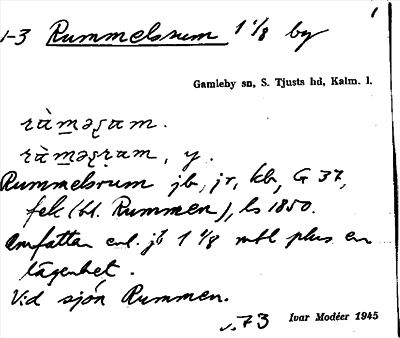 1-3 Rummelsrum 1 1/8 by
1
Gamleby sn, S. Tjusts hd, Kalm. l.
ràm̲əʂam.
ràm̲əʂr̥am, y.
Rummelsrum jb, jr, kb, G 37,
fek (bl. Rummen), ls 1850.
Omfattar enl. jb 1 1/8 mtl plus en
lägenhet.
Vid sjön Rummen.
s. 73
Ivar Modéer 1945